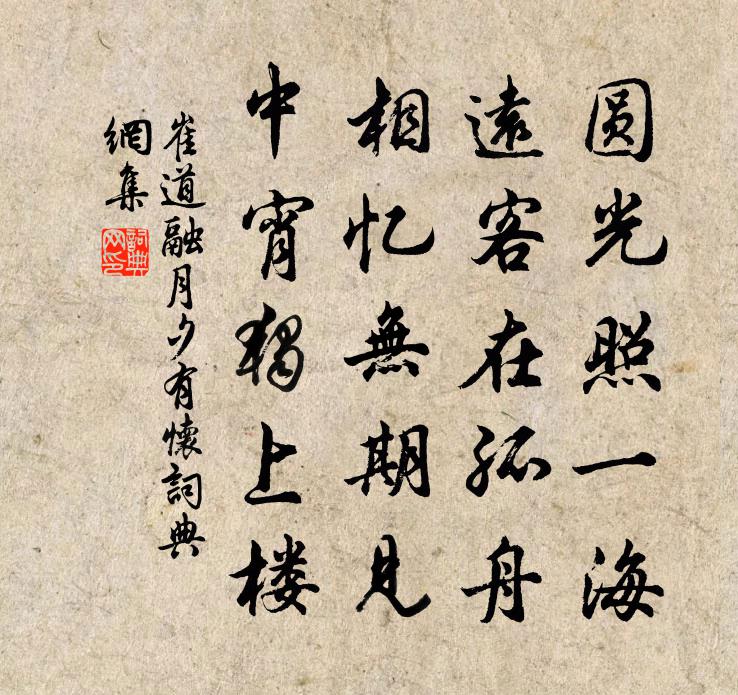 圆光照一海
遠客在孤舟
相忆無期見
中宵獨上楼
崔道融月夕有懷詞典
網集
詞典
网印